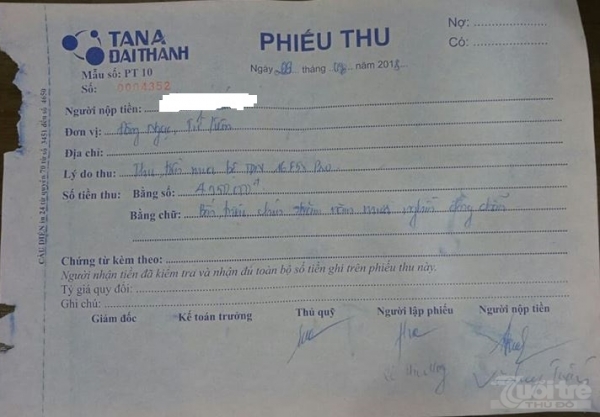 TANA
ĐẠI THÀNH
Mẫu số: PT 10
Số: 0004352
PHIẾU THU
Ngày tháng năm 2018
Nợ:
Có:
Người nộp tiền:
Đơn vị: Đông Ngạc, Từ Liêm
Địa chỉ:
Lý do thu: Thu tiền mua bể
Số tiền thu: Bằng số: 4.950.000đ
Bằng chữ: Bốn triệu chín trăm năm mươi nghìn đồng chẵn
Chứng từ kèm theo:
Người nhận tiền đã kiểm tra và nhận đủ toàn bộ số tiền ghi trên phiếu thu này.
Tỷ giá quy đổi:
Ghi chú:
Giám đốc Kế toán trưởng Thủ quỹ Người lập phiếu Người nộp tiền
Tuổi trẻ
THỦ ĐÔ